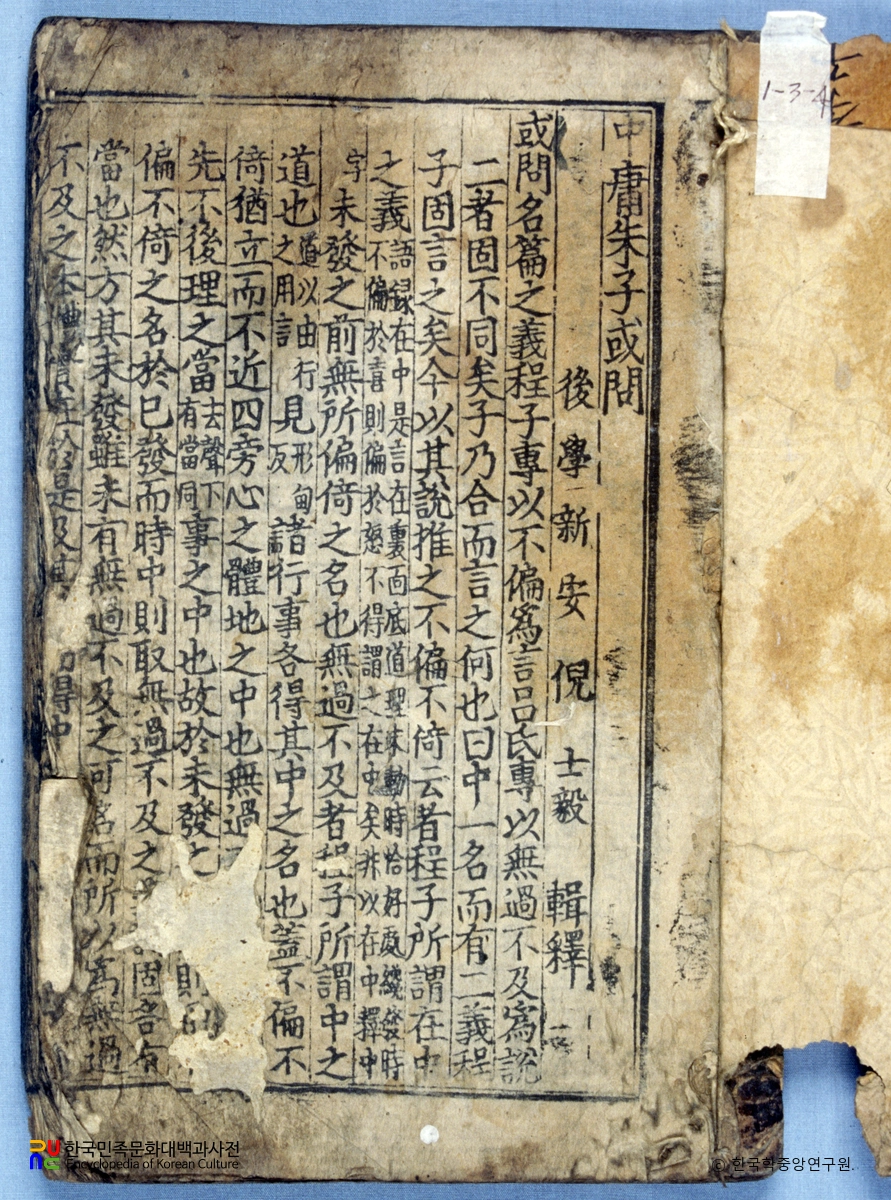 中庸朱子或問
後學新安倪士毅輯釋
或問名篇之義程子專以不偏爲言呂氏專以無過不及爲說
二者固不同矣子乃合而言之何也曰中一名而有二義程
子固言之矣今以其說推之不偏不倚云者程子所謂在中
之義語録在中是言在裏面底道理未動時恰好處纔發時不偏於喜則偏於怒不得謂之在中矣非以在中釋中
字未發之前無所偏倚之名也無過不及者程子所謂中之
道也道以由行之用言見形甸反諸行事各得其中之名也蓋不偏不
倚猶立而不近四旁心之體地之中也無過
先不後理之當去聲下有當同事之中也故於未發之 則
偏不倚之名於已發而時中則取無過不及之 固各有
當也然方其未發雖未有無過不及之可名而所以爲無過
不及之本 實在於是及其 得中
1-3-4
한국민족문화대백과사전
Encyclopedia of Korean Culture
© 한국학중앙연구원